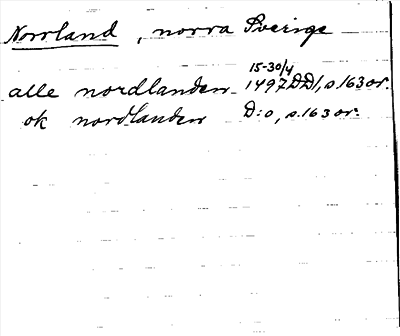 Norrland, norra Sverige
15-30/4
alle nordlanden 1497 DD1, s.163 or.
ok nordlanden D:o, s.163 or.